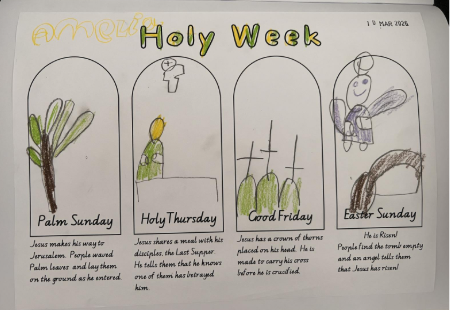 Amelia
Holy Week
Palm Sunday
Jesus makes his way to
Jerusalem. People waved
Palm leaves and lay them
on the ground as he entered.
Holy Thursday
Jesus shares a meal with his
disciples, the Last Supper.
He tells them that he knows
one of them has betrayed
him.
Good Friday
Jesus has a crown of thorns
placed on his head. He is
made to carry his cross
before he is crucified.
Easter Sunday
He is Risen!
People find the tomb empty
and an angel tells them
that Jesus has risen!